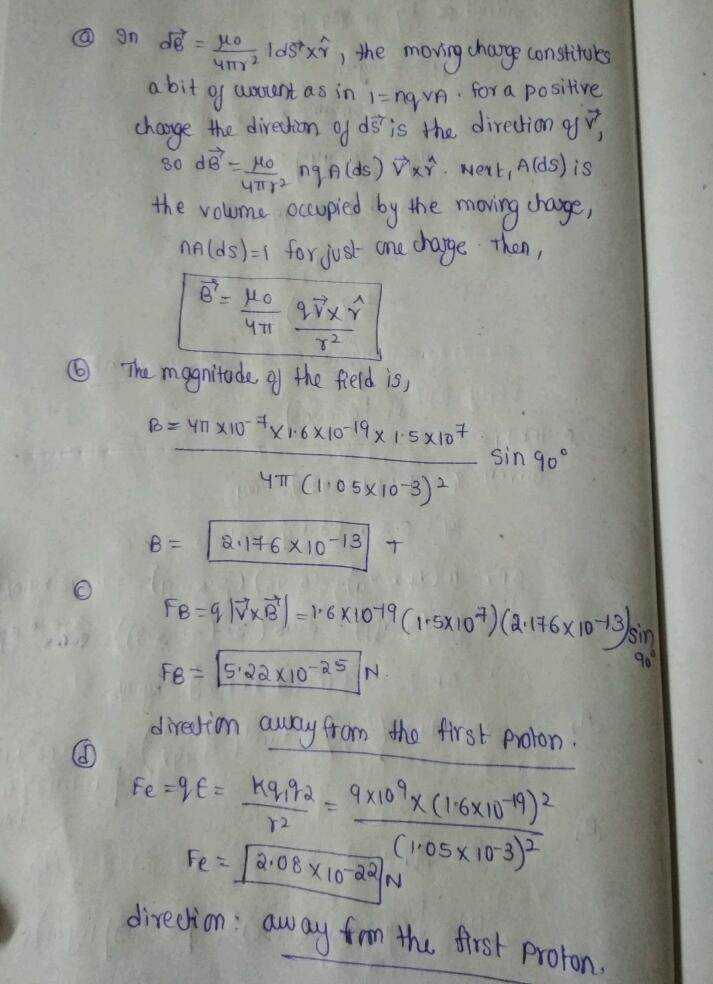 ⓐ In dB⃗ = μ0/4πr² Ids⃗ x r̂, the moving charge constitutes
a bit of current as in I = nqvA. for a positive
charge the direction of ds⃗ is the direction of V⃗,
so dB⃗ = μ0/4πr² nqA(ds) V⃗ x r̂. Next, A(ds) is
the volume occupied by the moving charge,
nA(ds)=1 for just one charge. then,
B⃗ = μ0/4π qV⃗ x r̂/r²
ⓑ The magnitude of the field is,
B = 4π x10-7 x 1.6 x 10-19 x 1.5 x 10⁷/4π (1.05x10-3)² sin 90°
B = 2.176 x 10-13 T
ⓒ
FB = q |V⃗xB⃗| = 1.6 x 10-19 (1.5x10⁷)(2.176x10-13) sin 90°
FB = 5.22 x10-25 N.
direction away from the first proton.
ⓓ
Fe = qE = Kq1q2/r² = 9x10⁹ x (1.6x10-19)²/(1.05 x 10-3)²
Fe = 2.08 x 10-22 N
direction: away from the first proton.